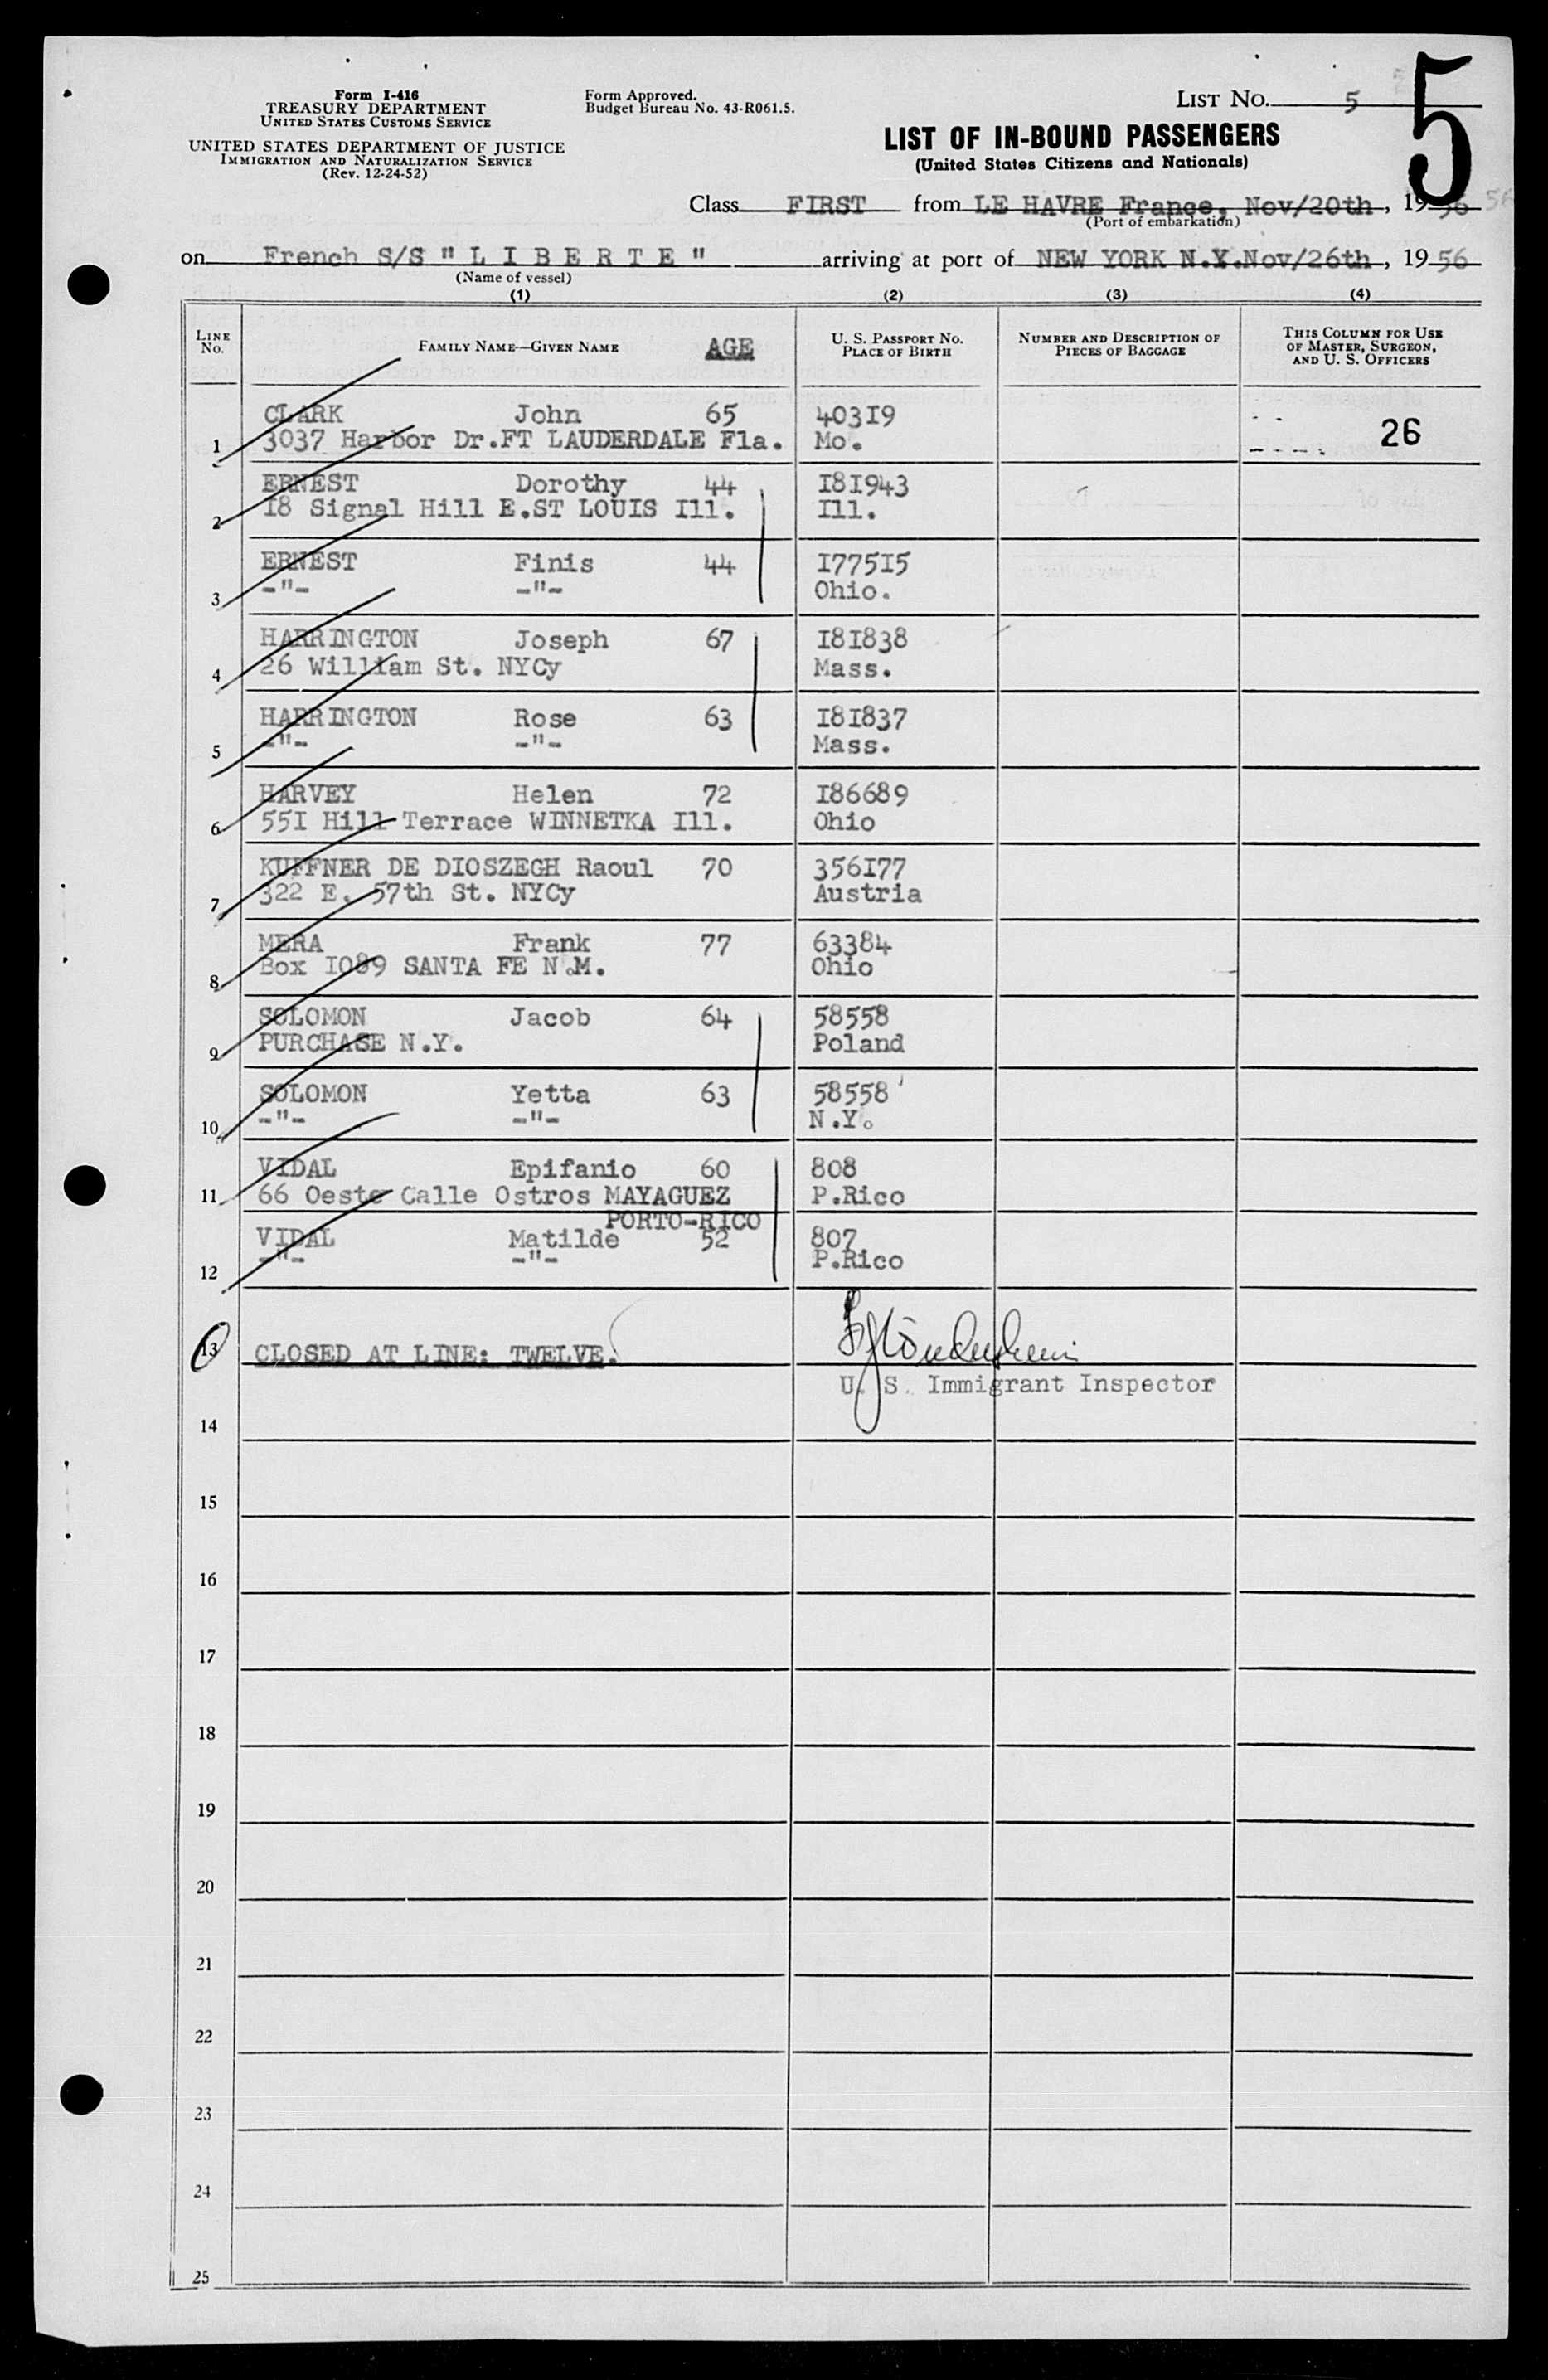 5
Form I-416
TREASURY DEPARTMENT
UNITED STATES CUSTOMS SERVICE
UNITED STATES DEPARTMENT OF JUSTICE
IMMIGRATION AND NATURALIZATION SERVICE
(Rev. 12-24-52)
Form Approved.
Budget Bureau No. 43-R061.5.
LIST No. 5
LIST OF IN-BOUND PASSENGERS
(United States Citizens and Nationals)
Class FIRST from LE HAVRE France, Nov/20th, 1956 56
(Port of embarkation)
on French S/S "L I B E R T E" arriving at port of NEW YORK N.Y.Nov/26th, 1956
(Name of vessel)
(1) (2) (3) (4)
LINE No. FAMILY NAME—GIVEN NAME AGE U. S. PASSPORT NO. PLACE OF BIRTH NUMBER AND DESCRIPTION OF PIECES OF BAGGAGE THIS COLUMN FOR USE OF MASTER, SURGEON, AND U. S. OFFICERS
CLARK John 65 403I9
1 3037 Harbor Dr.FT LAUDERDALE Fla. Mo. 26
ERNEST Dorothy 44 I8I943
2 I8 Signal Hill E.ST LOUIS Ill. Ill.
ERNEST Finis 44 I775I5
3 -"- -"- Ohio.
HARRINGTON Joseph 67 I8I838
4 26 William St. NYCy Mass.
HARRINGTON Rose 63 I8I837
5 -"- -"- Mass.
HARVEY Helen 72 I86689
6 55I Hill Terrace WINNETKA Ill. Ohio
KUFFNER DE DIOSZEGH Raoul 70 356I77
7 322 E. 57th St. NYCy Austria
MERA Frank 77 63384
8 Box I089 SANTA FE N.M. Ohio
SOLOMON Jacob 64 58558
9 PURCHASE N.Y. Poland
SOLOMON Yetta 63 58558
10 -"- -"- N.Y.
VIDAL Epifanio 60 808
11 66 Oeste Calle Ostros MAYAGUEZ P.Rico
PORTO-RICO
VIDAL Matilde 52 807
12 -"- -"- P.Rico
13 CLOSED AT LINE: TWELVE.
U. S. Immigrant Inspector
14
15
16
17
18
19
20
21
22
23
24
25